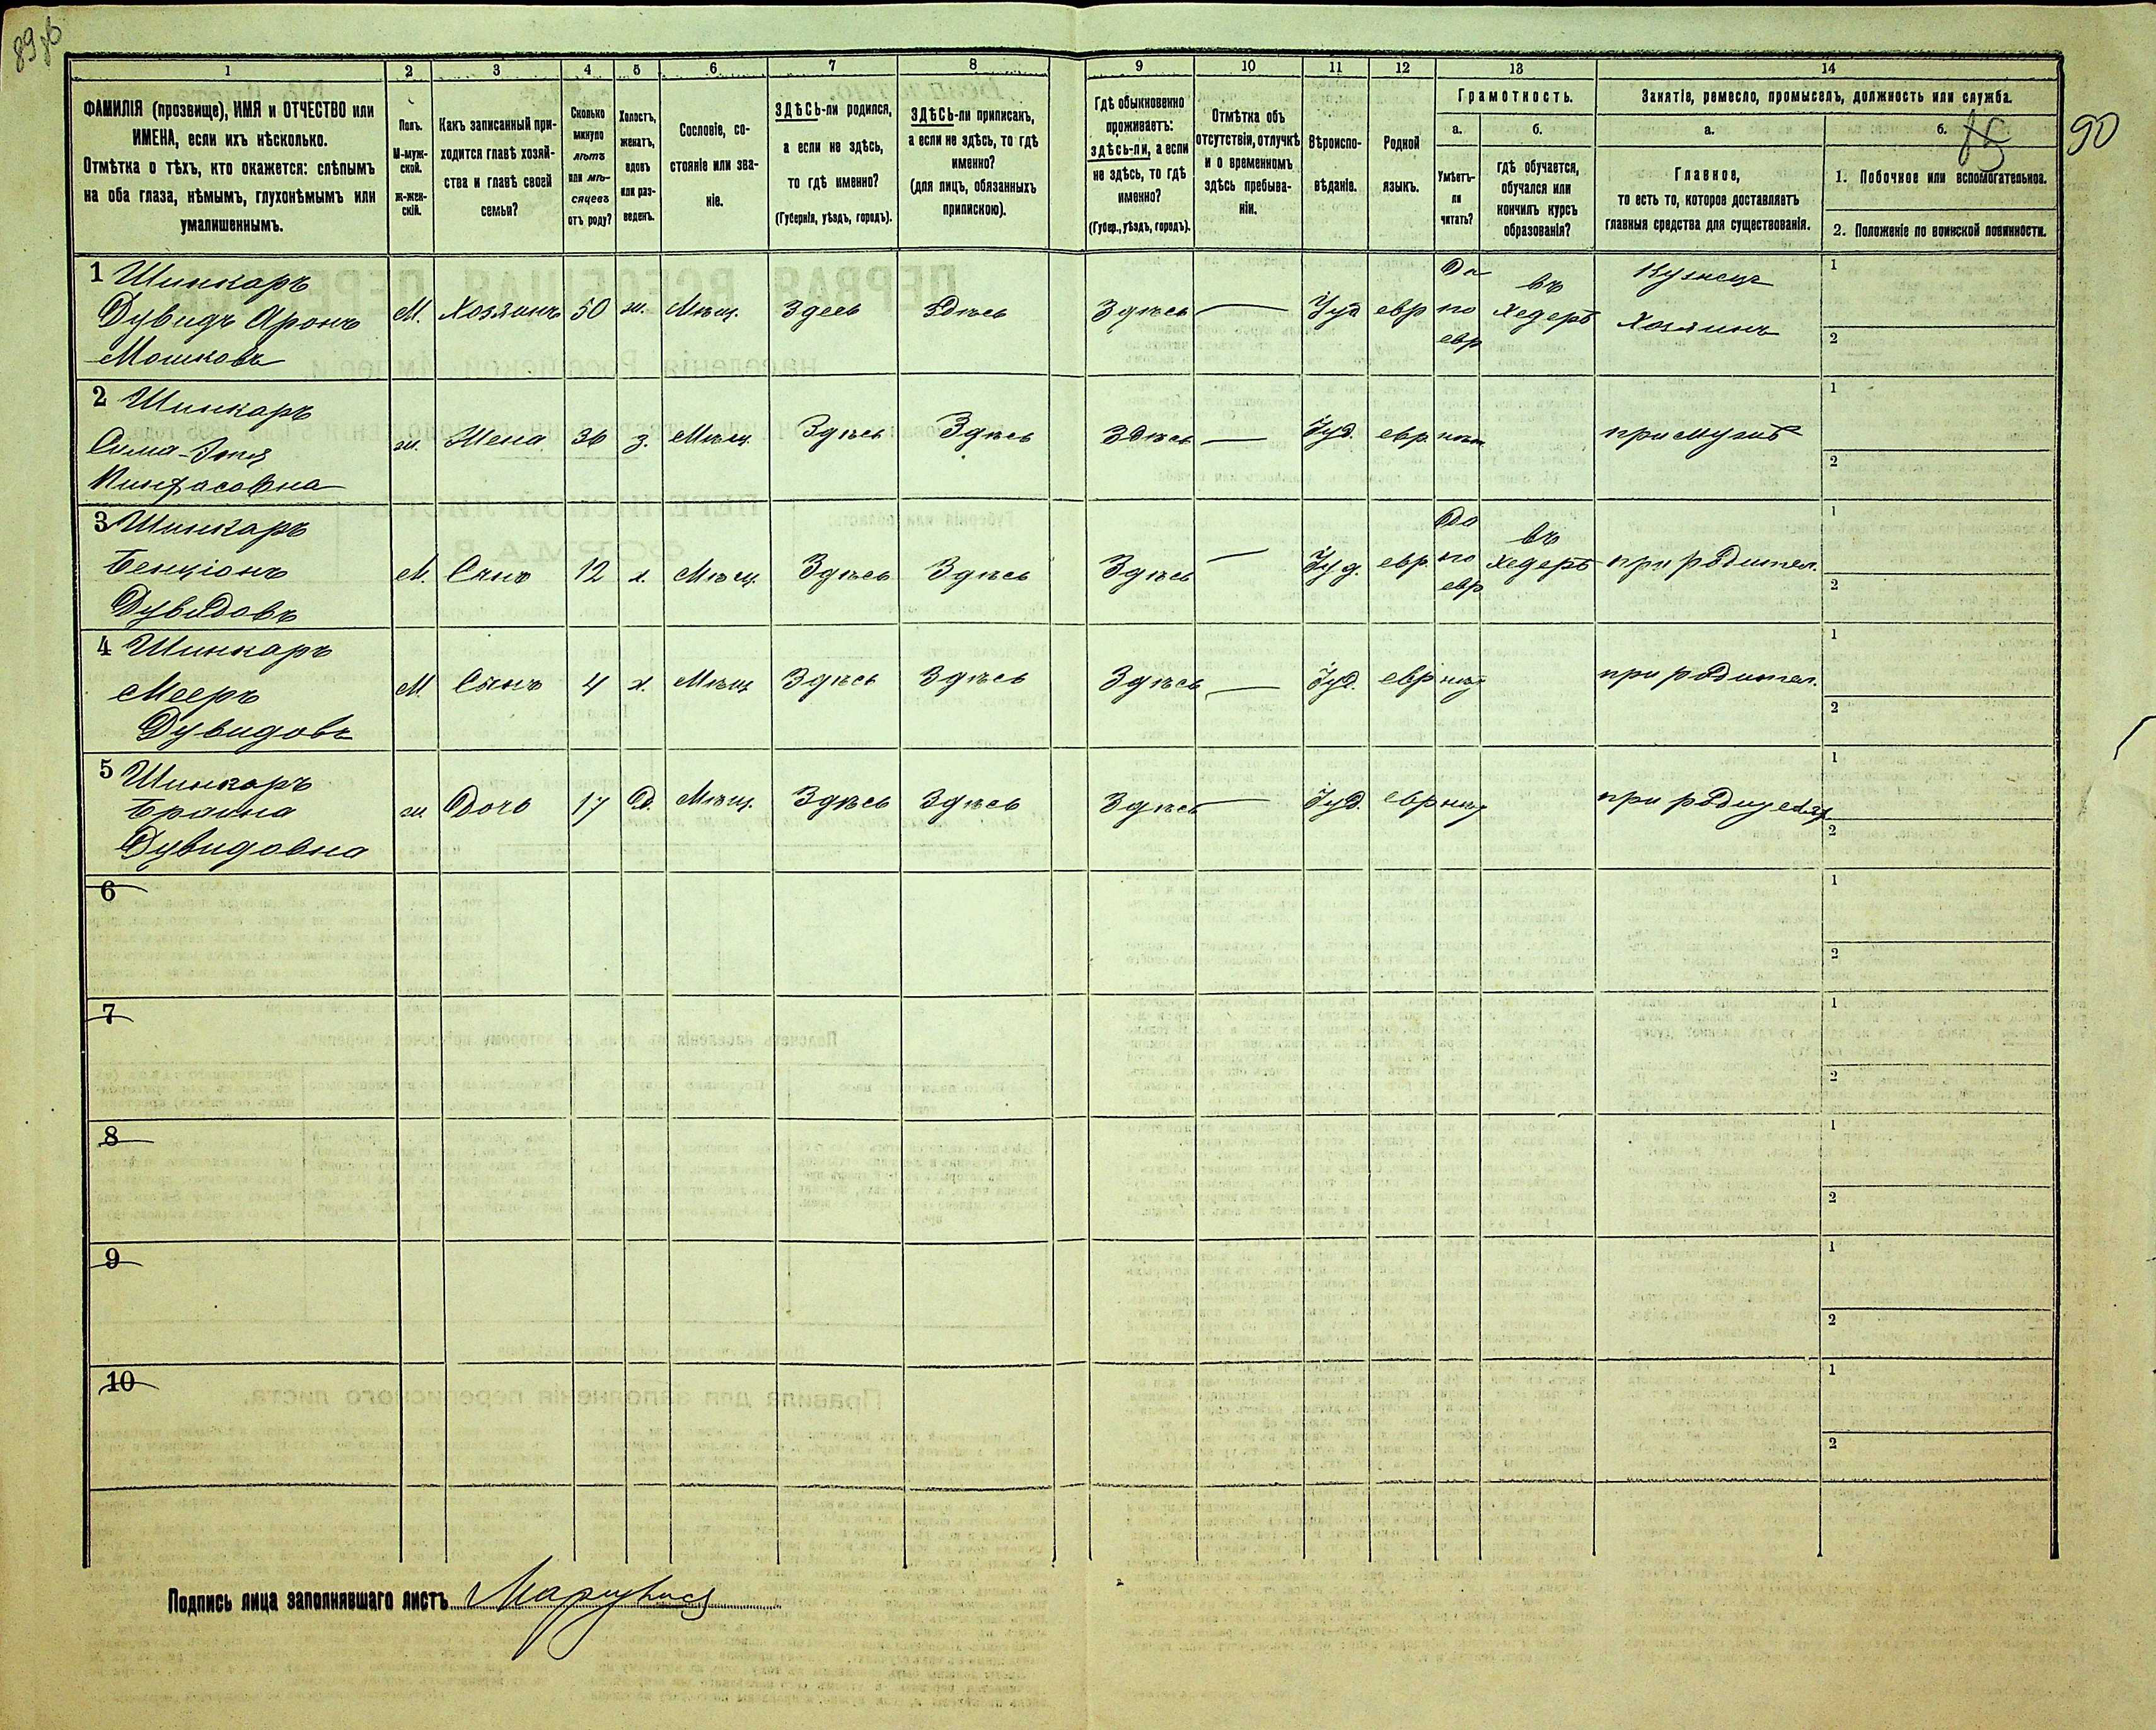 89об
90
85
1 2 3 4 5 6 7 8 9 10 11 12 13 14
ФАМИЛІЯ (прозвище), ИМЯ и ОТЧЕСТВО или
ИМЕНА, если ихъ нѣсколько.
Отмѣтка о тѣхъ, кто окажется: слѣпымъ
на оба глаза, нѣмымъ, глухонѣмымъ или
умалишеннымъ.
Полъ.
М-муж-
ской.
ж-жен-
скій.
Какъ записанный при-
ходится главѣ хозяй-
ства и главѣ своей
семьи?
Сколько
минуло
лѣтъ
или мѣ-
сяцевъ
отъ роду?
Холостъ,
женатъ,
вдовъ
или раз-
веденъ.
Сословіе, со-
стояніе или зва-
ніе.
ЗДѢСЬ-ли родился,
а если не здѣсь,
то гдѣ именно?
(Губернія, уѣздъ, городъ).
ЗДѢСЬ-ли приписанъ,
а если не здѣсь, то гдѣ
именно?
(для лицъ, обязанныхъ
припискою).
Гдѣ обыкновенно
проживаетъ:
здѣсь-ли, а если
не здѣсь, то гдѣ
именно?
(Губер., уѣздъ, городъ).
Отмѣтка объ
отсутствіи, отлучкѣ
и о временномъ
здѣсь пребыва-
ніи.
Вѣроиспо-
вѣданіе.
Родной
языкъ.
Грамотность.
а.
Умѣетъ-
ли
читать?
б.
гдѣ обучается,
обучался или
кончилъ курсъ
образованія?
Занятіе, ремесло, промыселъ, должность или служба.
а.
Главное,
то есть то, которое доставляетъ
главныя средства для существованія.
б.
1. Побочное или вспомогательное.
2. Положеніе по воинской повинности.
1 Шинкаръ
Дувидъ Аронъ
Мошковъ
М. Хозяинъ 50 ж. Мѣщ. Здесь Здѣсь Здѣсь — Іуд евр
Да
по
евр
въ
Хедерѣ
Кузнецъ
Хозяинъ
1
2
2 Шинкаръ
Сима-
Пинхасовна
ж. Жена 36 з. Мѣщ. Здѣсь Здѣсь Здѣсь — Іуд. евр. нѣт при мужѣ
1
2
3 Шинкаръ
Бенціонъ
Дувидовъ
М. Сынъ 12 х. Мѣщ. Здѣсь Здѣсь Здѣсь — Іуд. евр.
Да
по
евр
въ
Хедерѣ
при родител.
1
2
4 Шинкаръ
Мееръ
Дувидовъ
М. Сынъ 4 х. Мѣщ Здѣсь Здѣсь Здѣсь — Іуд. евр нѣт при родител.
1
2
5 Шинкаръ
Браина
Дувидовна
ж Дочь 17 Д. Мѣщ. Здѣсь Здѣсь Здѣсь — Іуд. евр нѣт
1
2
6
1
2
7
1
2
8
1
2
9
1
2
10
1
2
Подпись лица заполнявшаго листъ